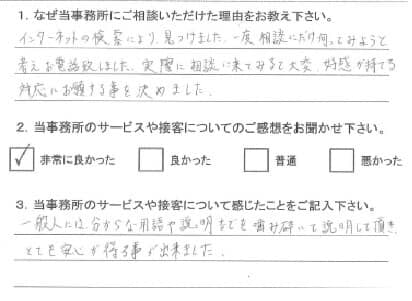 1. なぜ当事務所にご相談いただけた理由をお教え下さい。
インターネットの検索により、見つけました。一度相談にだけ行ってみようと
考えお電話致しました。実際に相談に来てみると大変、好感が持てる
対応にお願する事を決めました。
2. 当事務所のサービスや接客についてのご感想をお聞かせ下さい。
✓ 非常に良かった □ 良かった □ 普通 □ 悪かった
3. 当事務所のサービスや接客について感じたことをご記入下さい。
一般人には分からな用語や説明などを噛み砕いて説明して頂き
とても安心が得る事が出来ました。